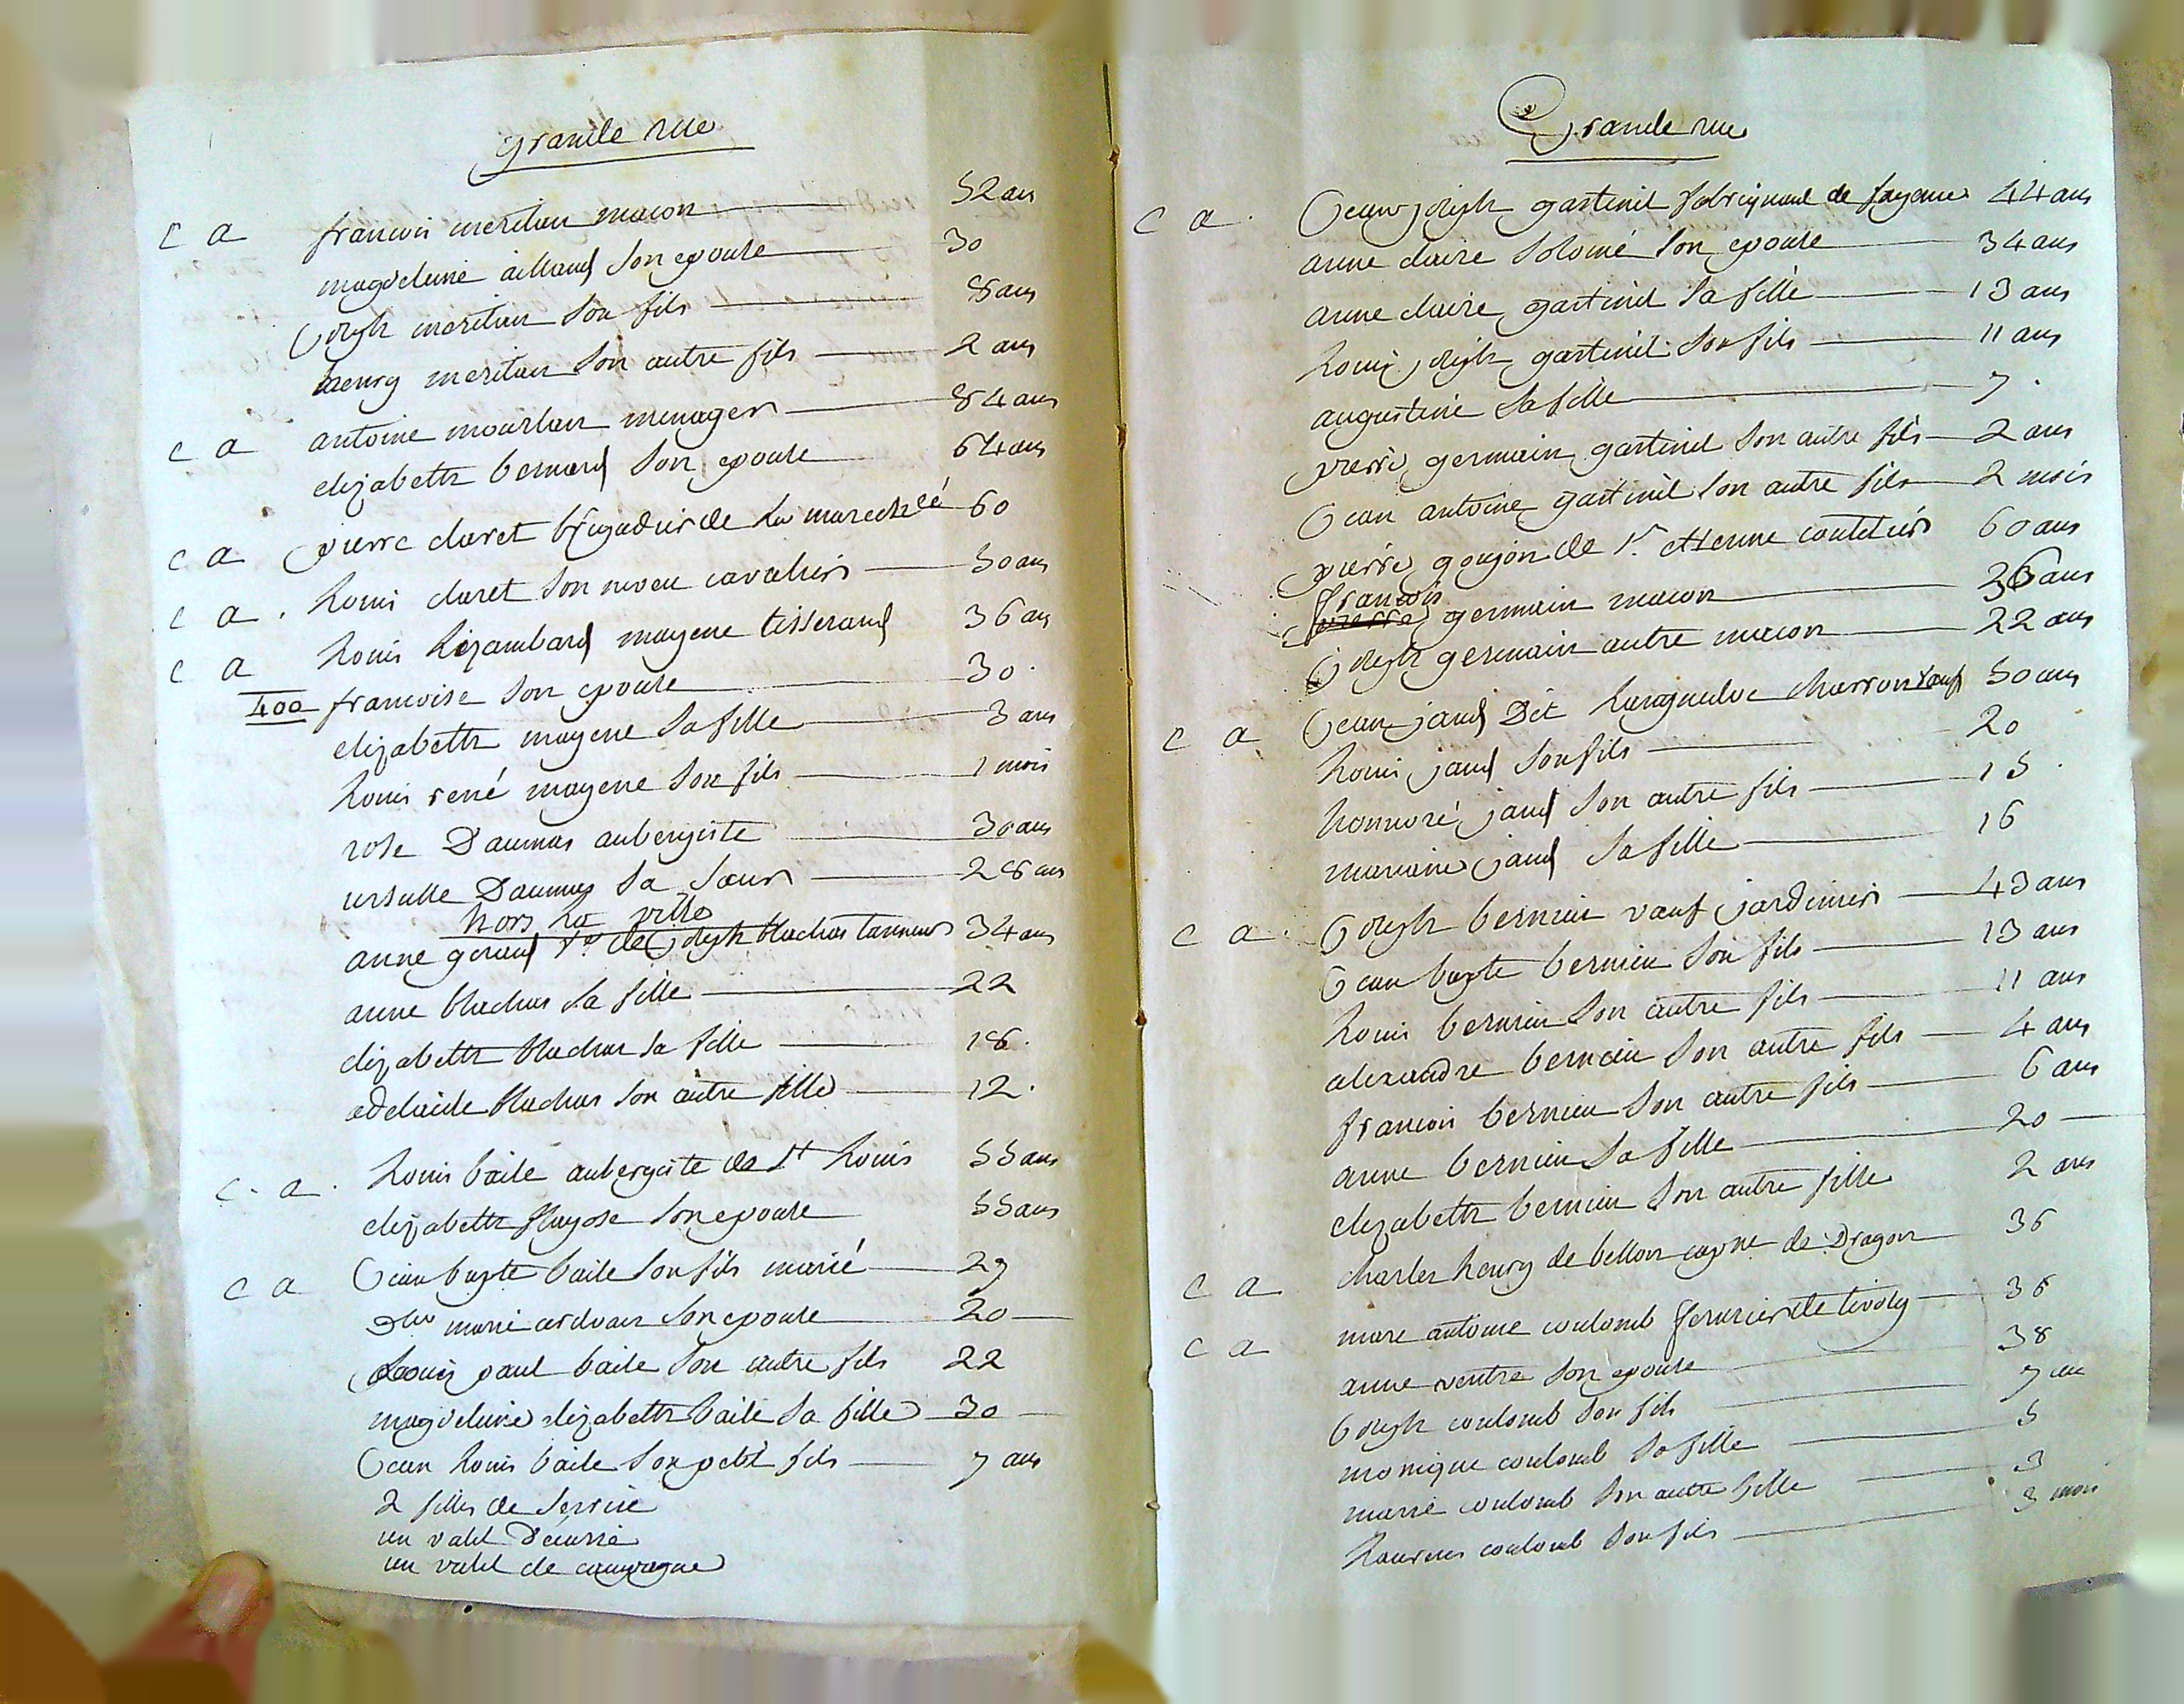 grande rue
c a francois meritan macon 52 ans
magdeleine aillaud son epouse 30
joseph meritan son fils 8 ans
henry meritan son autre fils 2 ans
c a antoine mourlan menager 84 ans
elizabeth bernard son epouse 64 ans
c a pierre claret brigadier de la marechalé 60
c a . louis claret son neveu cavalier 30 ans
c a louis lizambard mayene tisserand 36 ans
400 francoise son epouse 30
elizabeth mayene sa fille 3 ans
louis rené mayene son fils 1 mois
rose Daumas aubergiste 30 ans
ursulle Daumas sa soeur 28 ans
hors la ville
anne geraud ve de joseph blachas tanneur 34 ans
anne blachas sa fille 22
elizabeth blachas sa fille 18.
adelaide blachas son autre fille 12.
c. a. louis baile aubergiste de st louis 55 ans
elizabeth flayose son epouse 55 ans
c a jean bapte baile son fils marié 29
marie arduan son epouse 20
louis paul baile son autre fils 22
magdeleine elizabeth baile sa fille 30
jean louis baile son petit fils 7 ans
2 filles de service
un valet d'ecurie
un valet de campagne
Grande rue
c a . jean joseph gastinel fabriquant de fayance 44 ans
anne claire solomé son epouse 34 ans
anne claire gastinel sa fille 13 ans
louis joseph gastinel son fils 11 ans
augustine sa fille 7.
pierre germain gastinel son autre fils 2 ans
jean antoine gastinel son autre fils 2 mois
pierre goujon de st etienne coutelier 60 ans
francois germain macon 26 ans
joseph germain autre macon 22 ans
c a jean jaud Dit languedoc charron veuf 50 ans
louis jaud son fils 20
honnoré jaud son autre fils 15.
marianne jaud sa fille 16
c a . joseph bernieu veuf jardinier 43 ans
jean bapte bernieu son fils 13 ans
louis bernieu son autre fils 11 ans
alexandre bernieu son autre fils 4 ans
francois bernieu son autre fils 6 ans
anne bernieu sa fille 20
elizabeth bernieu son autre fille 2 ans
c a charles henry de bellon capne de Dragon 36
c a marc antoine coulomb fermier de tivoly 36
anne ventre son epouse 38
joseph coulomb son fils 7 an
monique coulomb sa fille 5
marie coulomb son autre fille 3
laurens coulomb son fils 3 mois